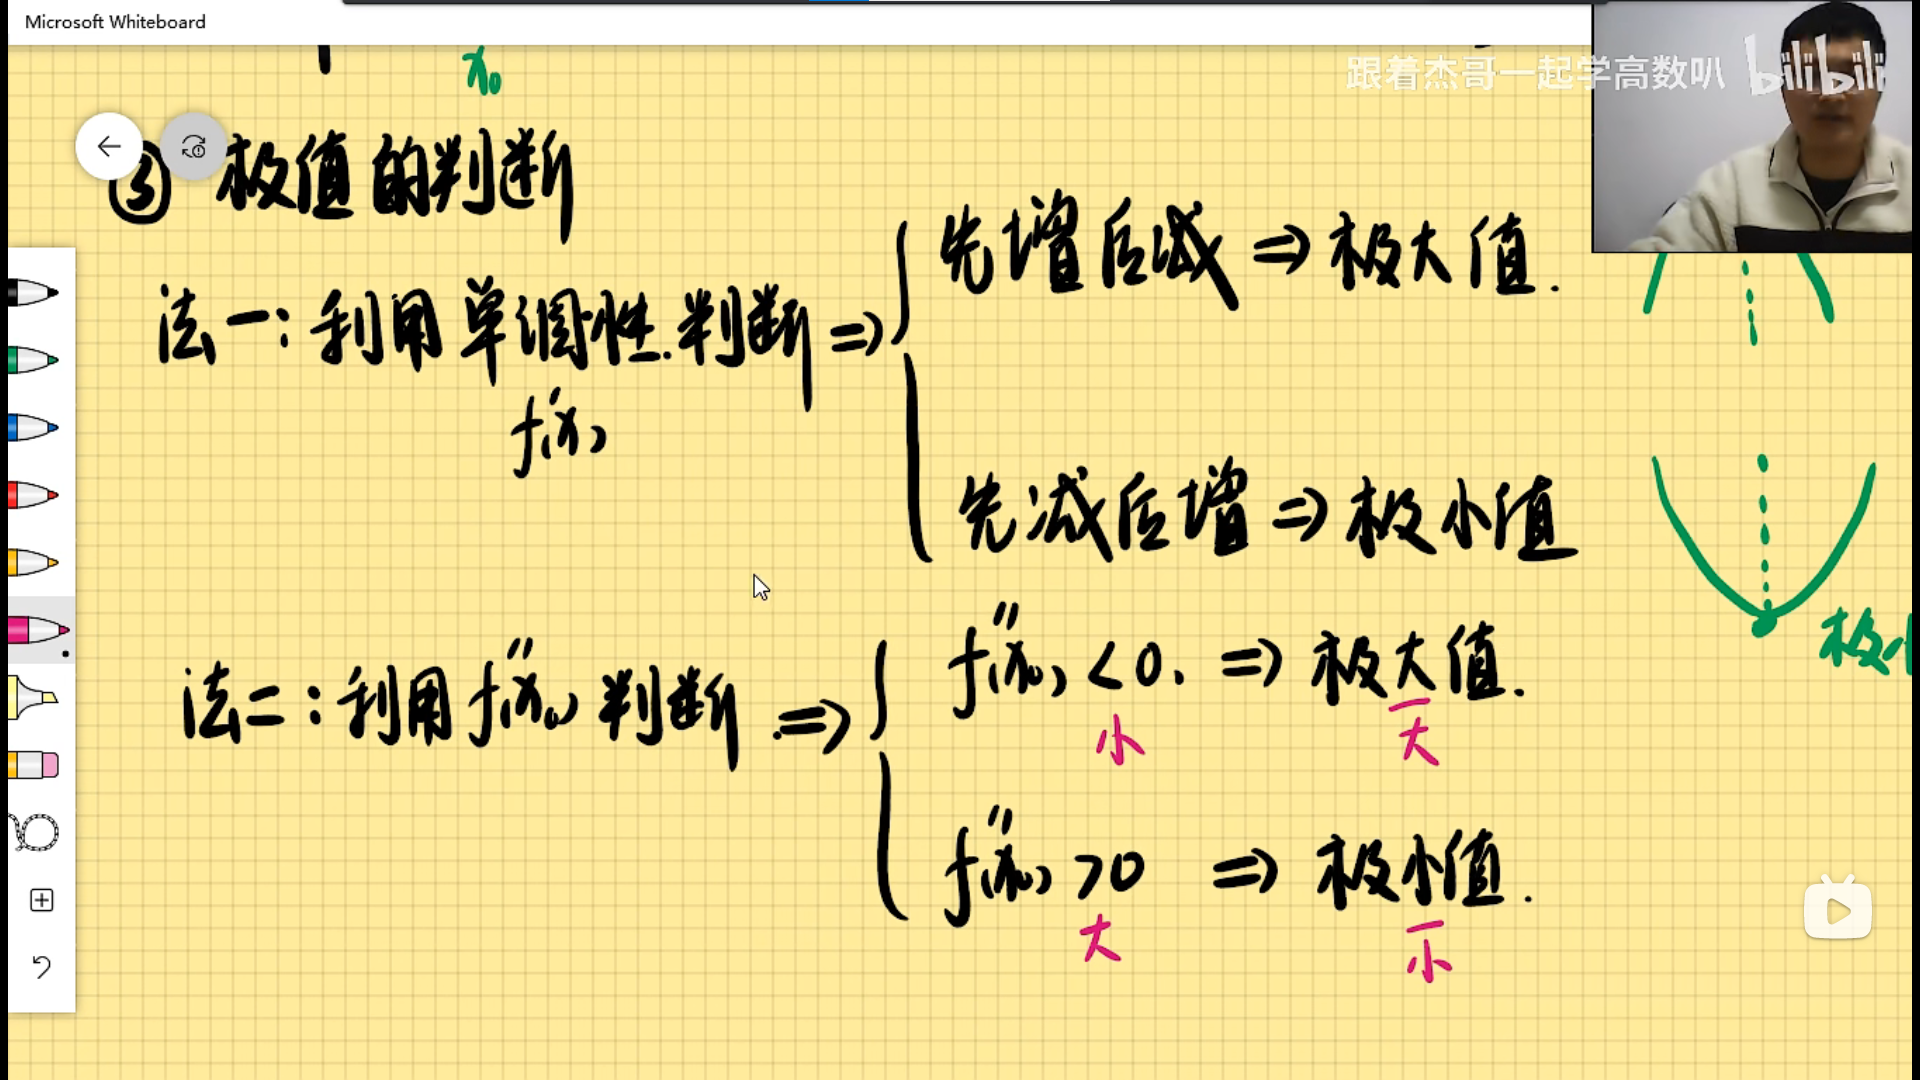 Microsoft Whiteboard
跟着杰哥一起学高数叭 bilibili
x₀
③ 极值的判断
法一:利用单调性.判断 ⇒
f'(x)
先增后减 ⇒ 极大值.
先减后增 ⇒ 极小值
极小
法二:利用f''(x₀)判断 .⇒
f''(x₀) < 0. ⇒ 极大值.
小 大
f''(x₀) >0 ⇒ 极小值.
大 小